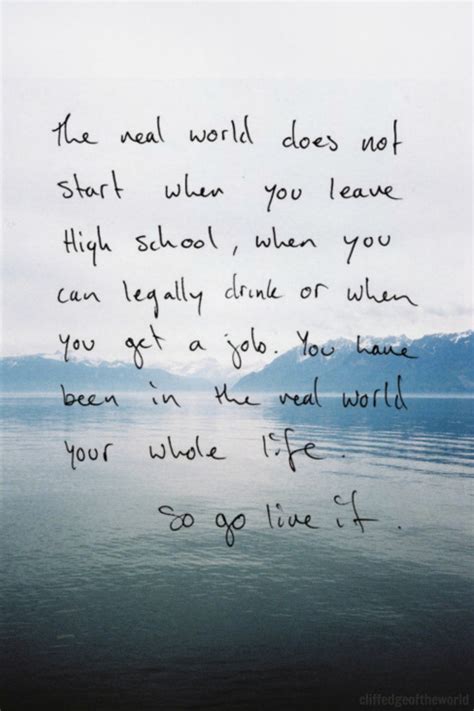 the real world does not
start when you leave
High school, when you
can legally drink or when
you get a job. You have
been in the real world
your whole life.
so go live it.
cliffedgeoftheworld